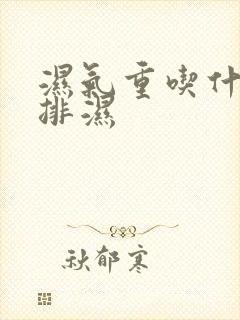 濕氣重喫什
排濕
秋郁寒